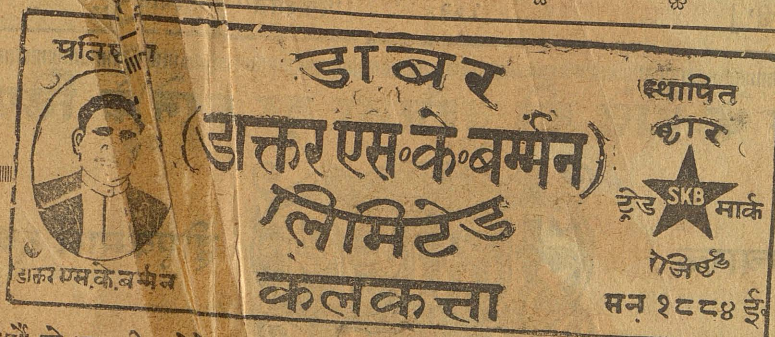 प्रतिष्ठाता
डाक्तर एस.के.बर्म्मन
डाबर
(डाक्तर एस॰के॰बर्म्मन)
लिमिटेड
कलकत्ता
स्थापित
ष्टार
SKB
ट्रेड मार्क
सन् १८८४ ई॰